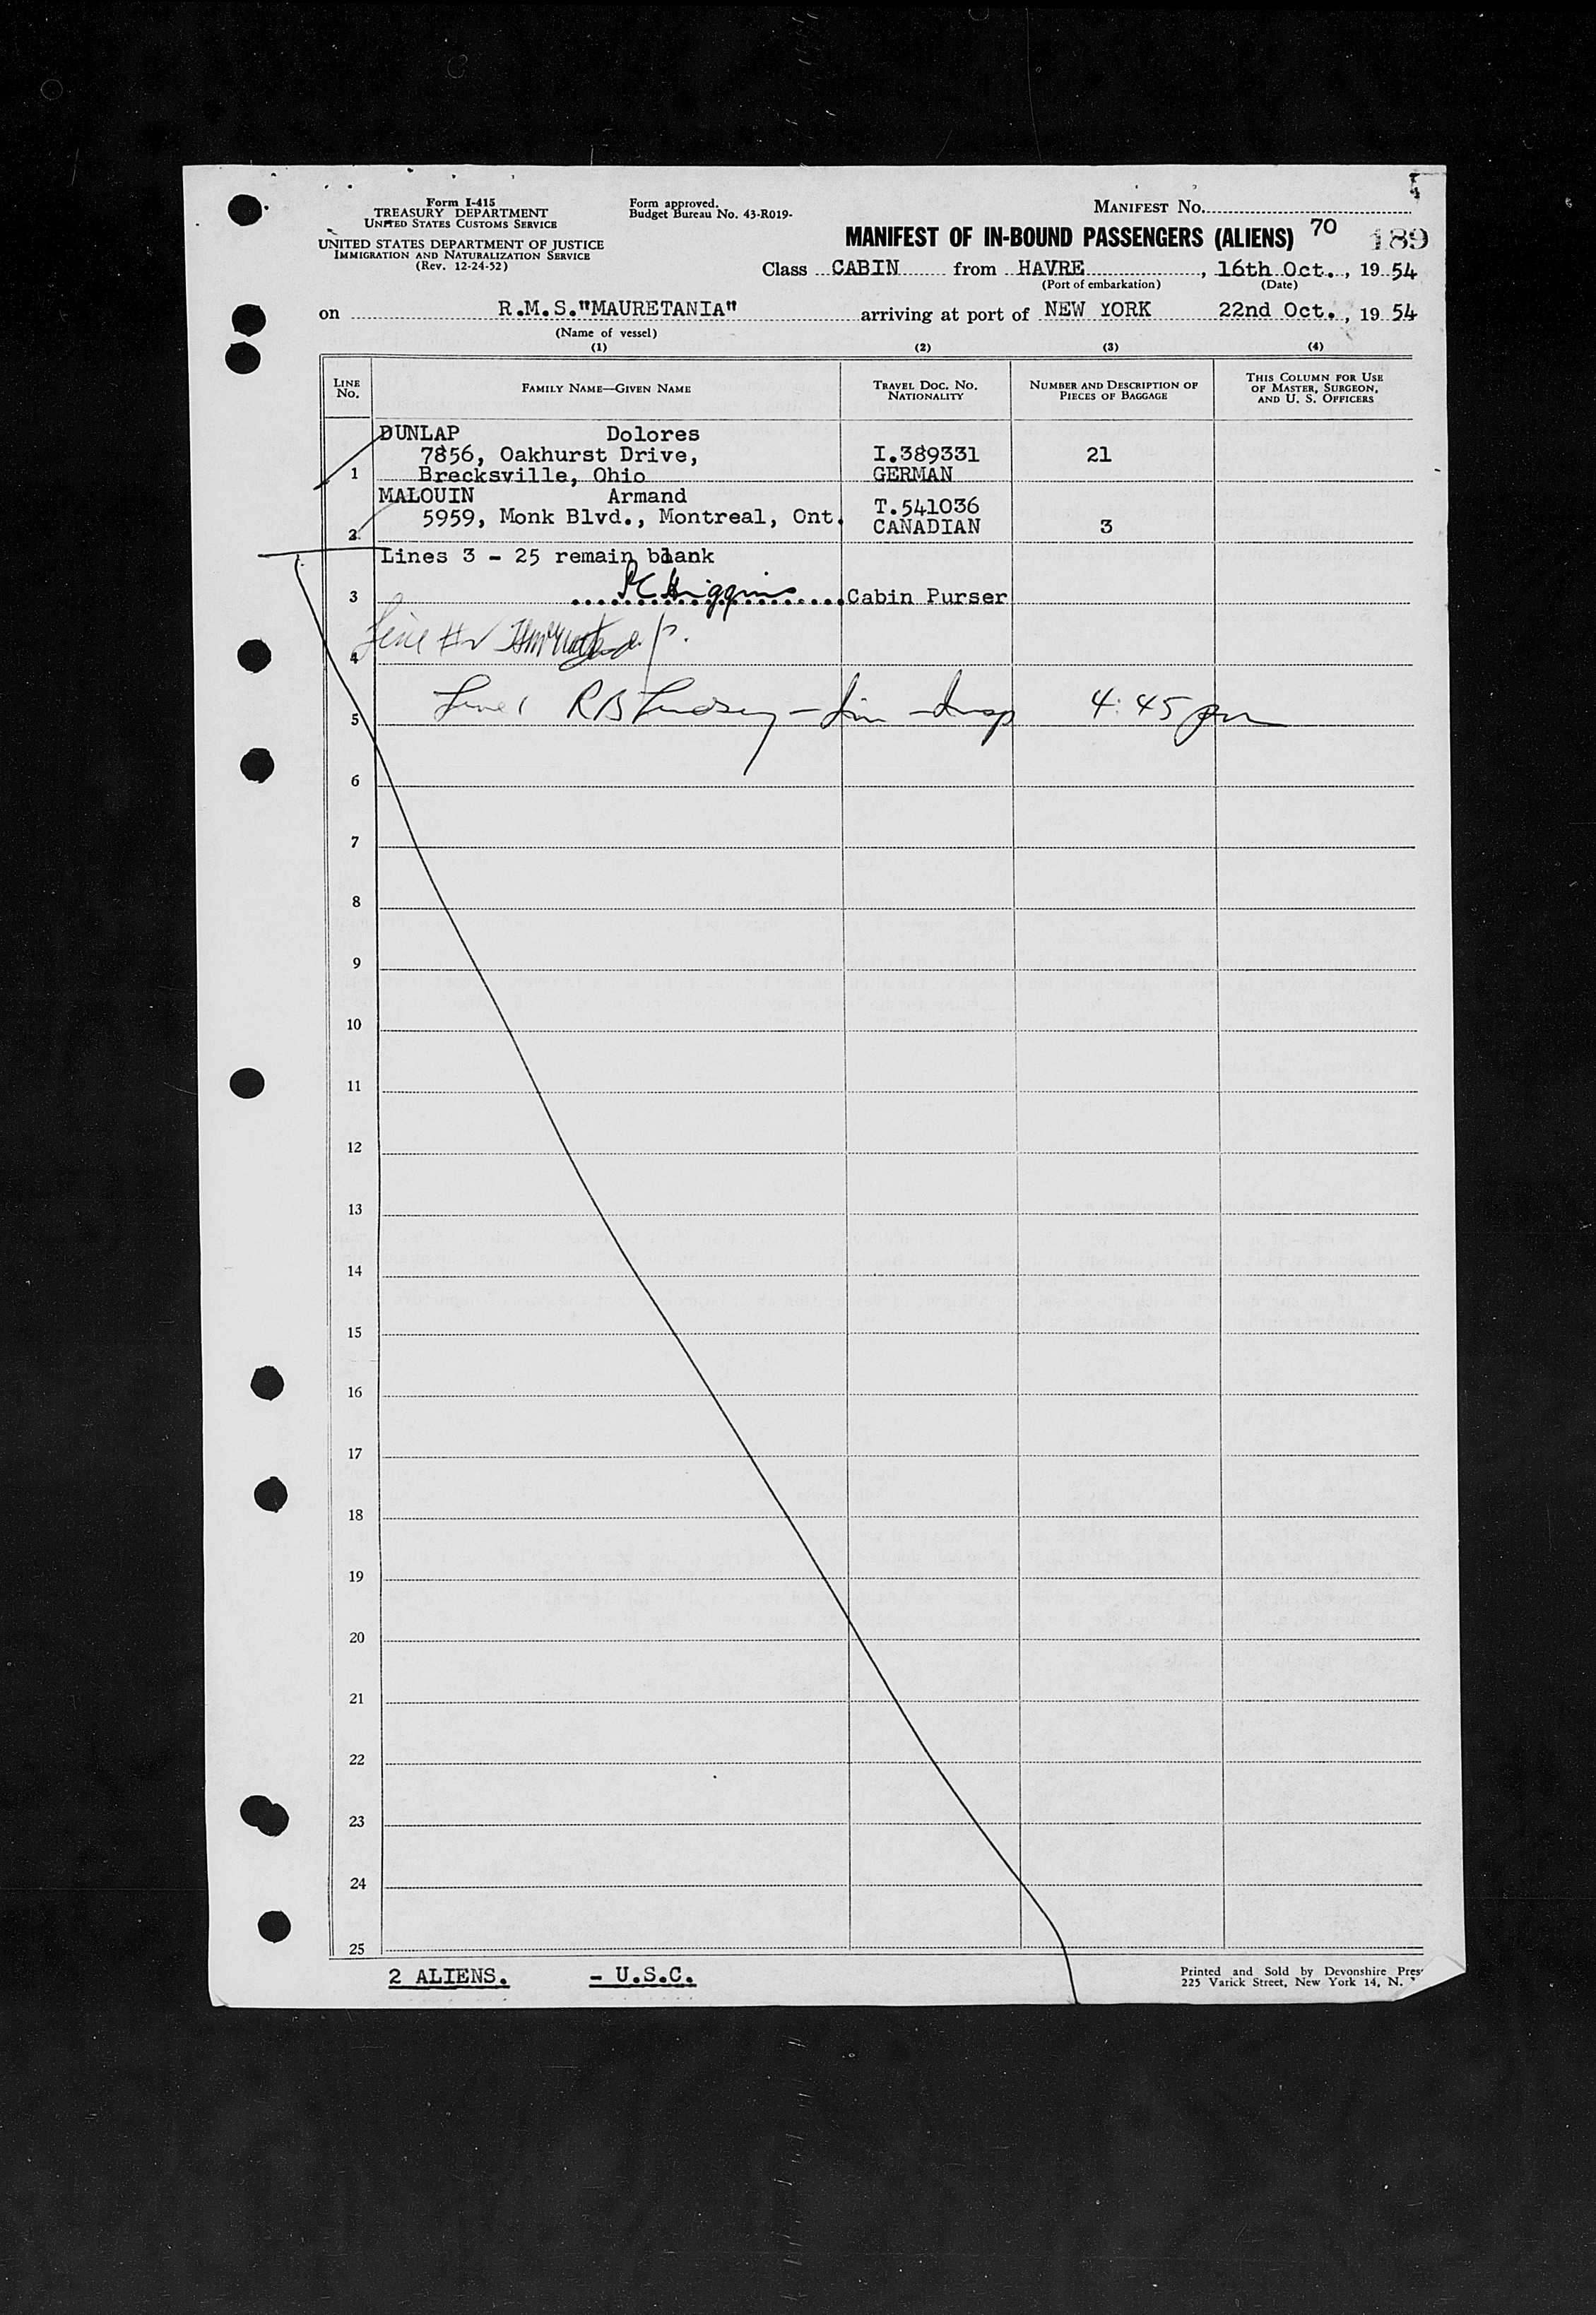 Form I-415
TREASURY DEPARTMENT
UNITED STATES CUSTOMS SERVICE
UNITED STATES DEPARTMENT OF JUSTICE
IMMIGRATION AND NATURALIZATION SERVICE
(Rev. 12-24-52)
Form approved.
Budget Bureau No. 43-R019-
MANIFEST NO.
MANIFEST OF IN-BOUND PASSENGERS (ALIENS) 70 189
Class CABIN from HAVRE, 16th Oct., 19 54
(Port of embarkation) (Date)
on R.M.S."MAURETANIA" arriving at port of NEW YORK 22nd Oct., 19 54
(Name of vessel)
(1) (2) (3) (4)
LINE NO.
FAMILY NAME—GIVEN NAME
TRAVEL DOC. NO. NATIONALITY
NUMBER AND DESCRIPTION OF PIECES OF BAGGAGE
THIS COLUMN FOR USE OF MASTER, SURGEON, AND U. S. OFFICERS
DUNLAP Dolores
7856, Oakhurst Drive, I.389331 21
1 Brecksville, Ohio GERMAN
MALOUIN Armand T.541036
5959, Monk Blvd., Montreal, Ont. CANADIAN 3
2
Lines 3 - 25 remain blank
3 Higgins Cabin Purser
Line
4
Line 1 R B Lindsey - Im - Insp 4:45 pm
5
6
7
8
9
10
11
12
13
14
15
16
17
18
19
20
21
22
23
24
25
2 ALIENS. - U.S.C.
Printed and Sold by Devonshire Pres
225 Varick Street, New York 14, N.